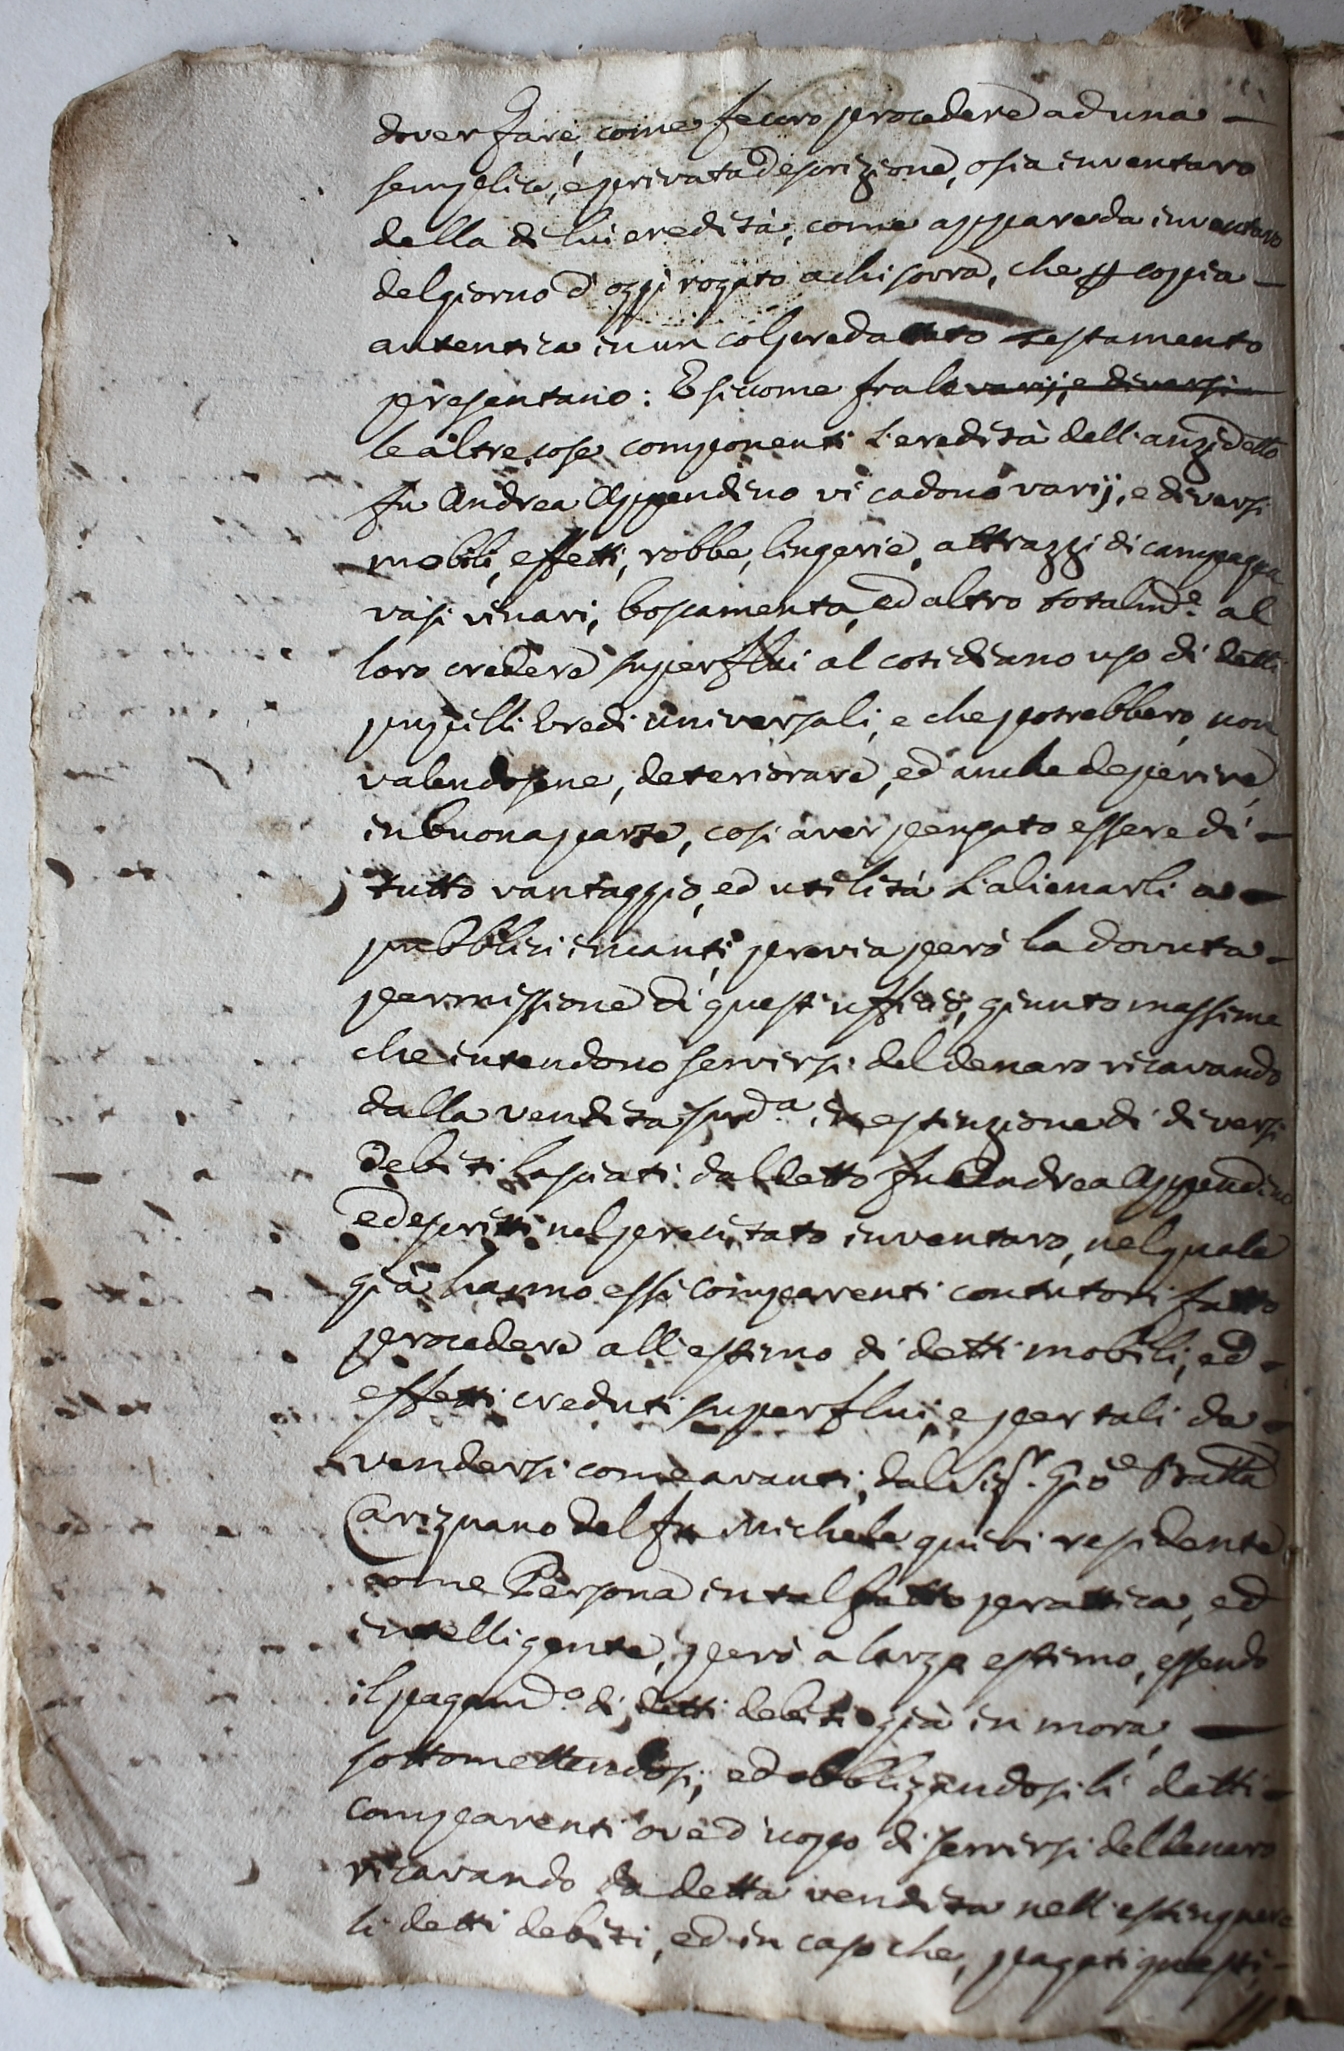 dover fare, come fecero procedere ad una
semplice, e privata descrizione, o sia inventaro
della di lui eredità, come appare da inventaro
del giorno d'oggi rogato a chi sovra, che p coppia
autentica in un col predattato testamento
presentano: E siccome fra le varij, e diversi
le altre cose componenti l'eredità dell'anzidetto
fu Andrea Appendino vi cadono varij, e diversi
mobili, effetti, robbe, lingerie, attrazzi di campagna
vasi vinari, boscamenta, ed altro totalmde. al
loro credere superflui al cotidiano uso di detti
pupilli Eredi universali, e che potrebbero, non
valendosene, deteriorare, ed anche deperire
in buona parte, così aver pensato essere di
tutto vantaggio, ed utilità l'alienarli a
pubblici incanti, previa però la dovuta
permissione di quest'uffizio, giunto massime
che intendono servirsi del denaro ricavando
dalla vendita sudª. in estinzione di diversi
debiti lasciati dal detto fu Andrea Appendino
e descritti nel precitato inventaro, nel quale
già hanno essi comparenti contutori fatto
procedere all'estimo di detti mobili, ed
effetti creduti superflui, e per tali da
vendersi come avanti, dal Sigr. Gioe Batta
Carignano del fu Michele quivi residente
come Persona in tal fatto prattica, ed
intelligente, però a largo estimo, essendo
il pagamdo. di detti debiti già in mora,
sottomettendosi, ed obbligandosi li detti
comparenti ove d'uopo di servirsi del denaro
ricavando da detta vendita nell'estinguere
li detti debiti, ed in caso che, pagati questi,